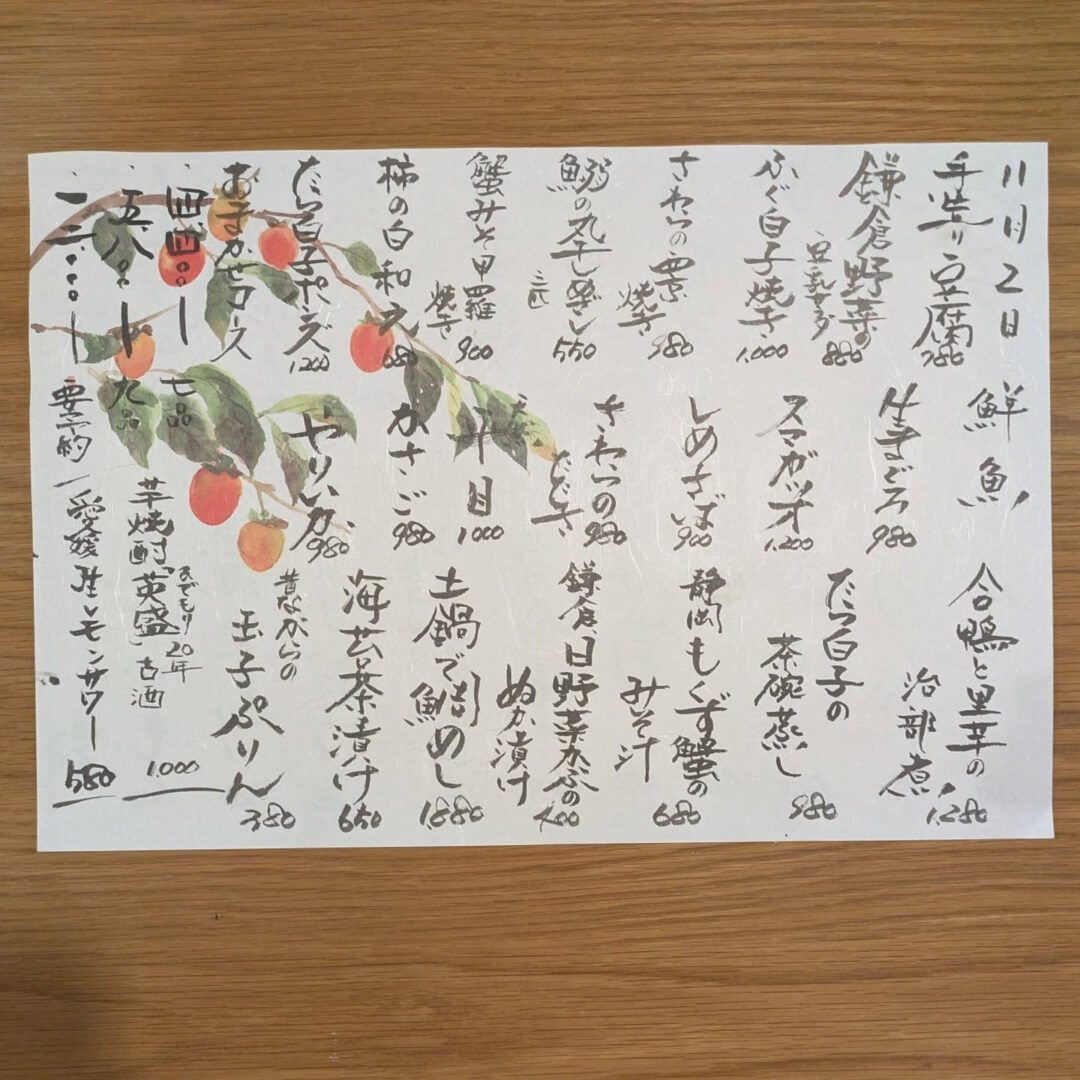 11月2日
手造り豆腐
780
鎌倉野菜の
豆乳サラダ
880
ふぐ白子焼き
1.000
さわらの
焼き
980
鰯の丸干し
三尾
550
蟹みそ甲羅
焼き
900
柿の白和え
680
たら白子ポンズ
1200
おまかせコース
四.四〇〇ー七品
五.八〇〇ー九品
一二.〇〇〇ー要予約
鮮魚
生まぐろ
980
スマガツオ
1.200
しめさば
900
さわらの
たたき
980
十目
1000
かさご
980
やりいか
980
合鴨と里芋の
治部煮
1.280
たら白子の
茶碗蒸し
980
静岡もくず蟹の
みそ汁
680
鎌倉、日野菜かぶの
ぬか漬け
400
土鍋で鯛めし
1.880
海苔茶漬け
650
昔ながらの
玉子ぷりん
380
芋焼酎「英盛」古酒
20年
1.000
愛媛産レモンサワー
580